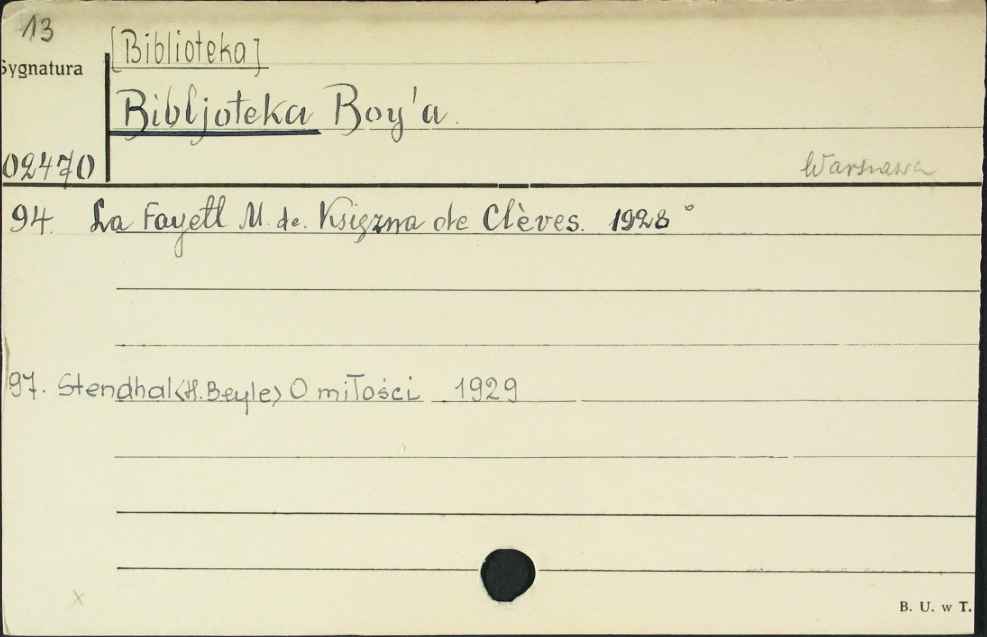 13
[Biblioteka]
Sygnatura
Bibljoteka Boy'a.
02470
Warszawa
94. La Fayett M. de. Księżna de Clèves. 1928°
97. Stendhal <H. Beyle> O miłości 1929
x
B. U. w T.